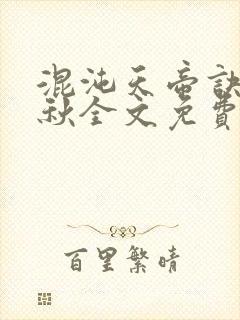 混沌天帝訣
秋全文免費
百里繁晴